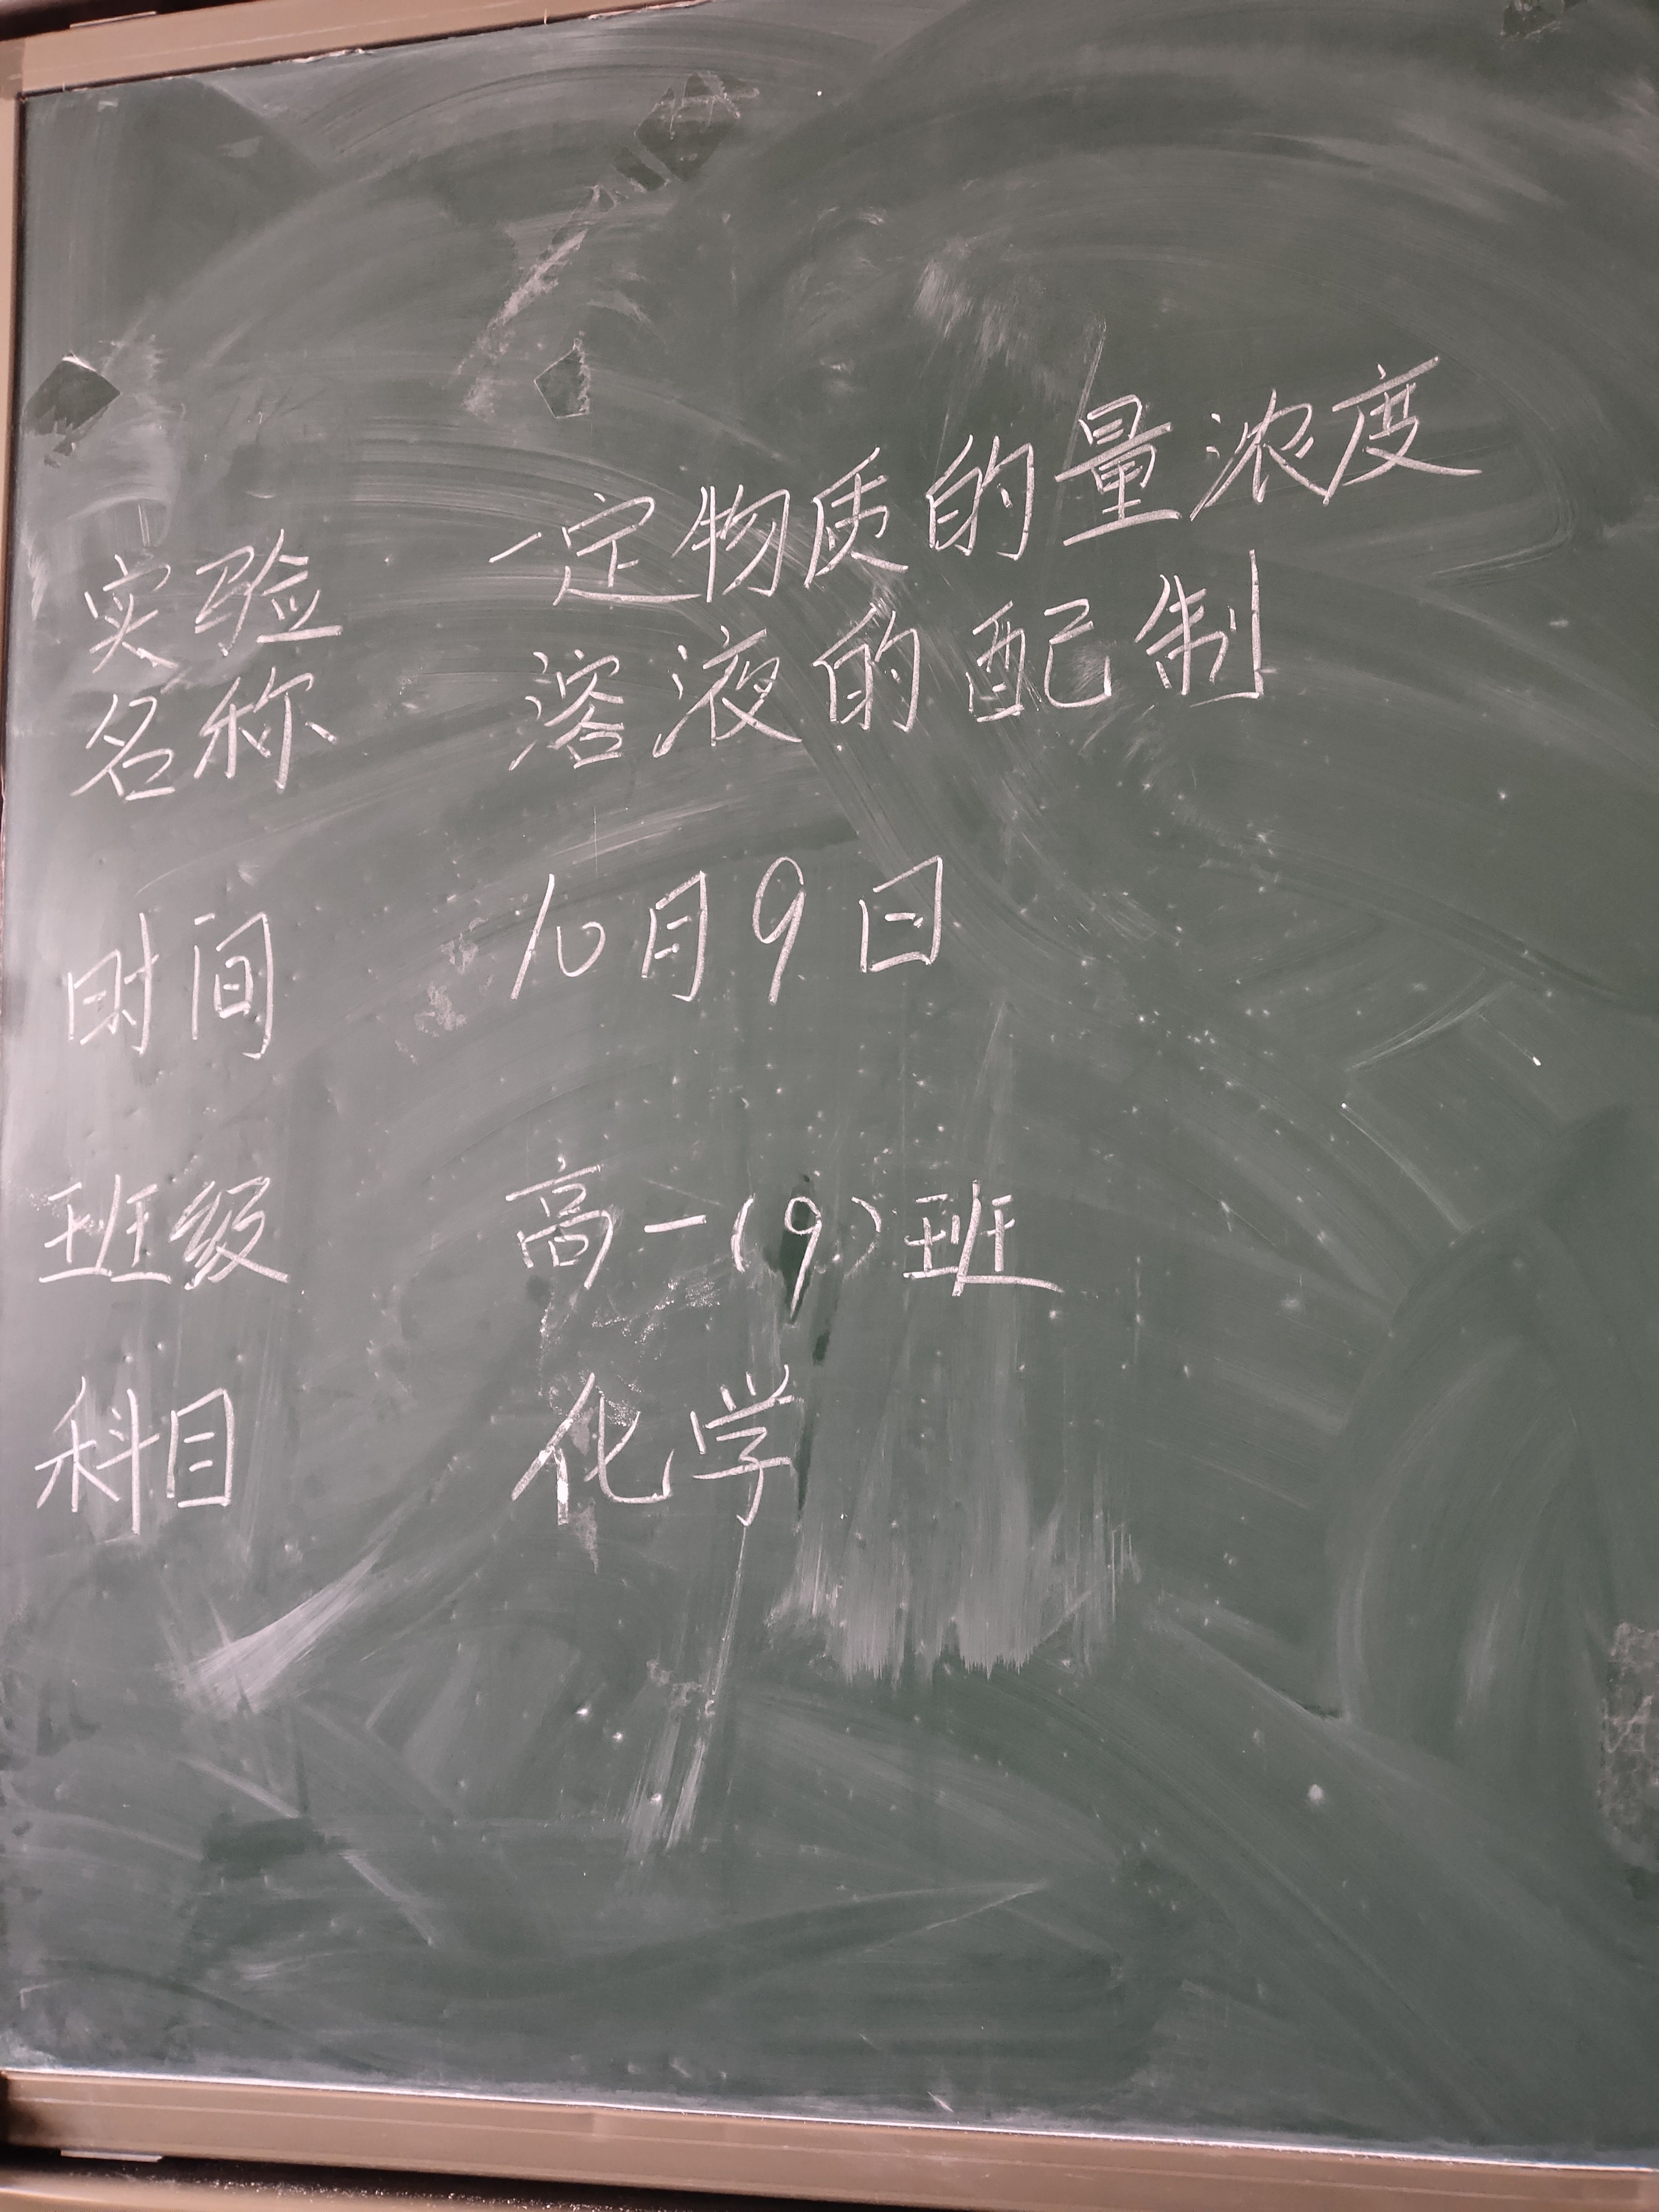 实验名称 一定物质的量浓度
溶液的配制
时间 10月9日
班级 高一(9)班
科目 化学